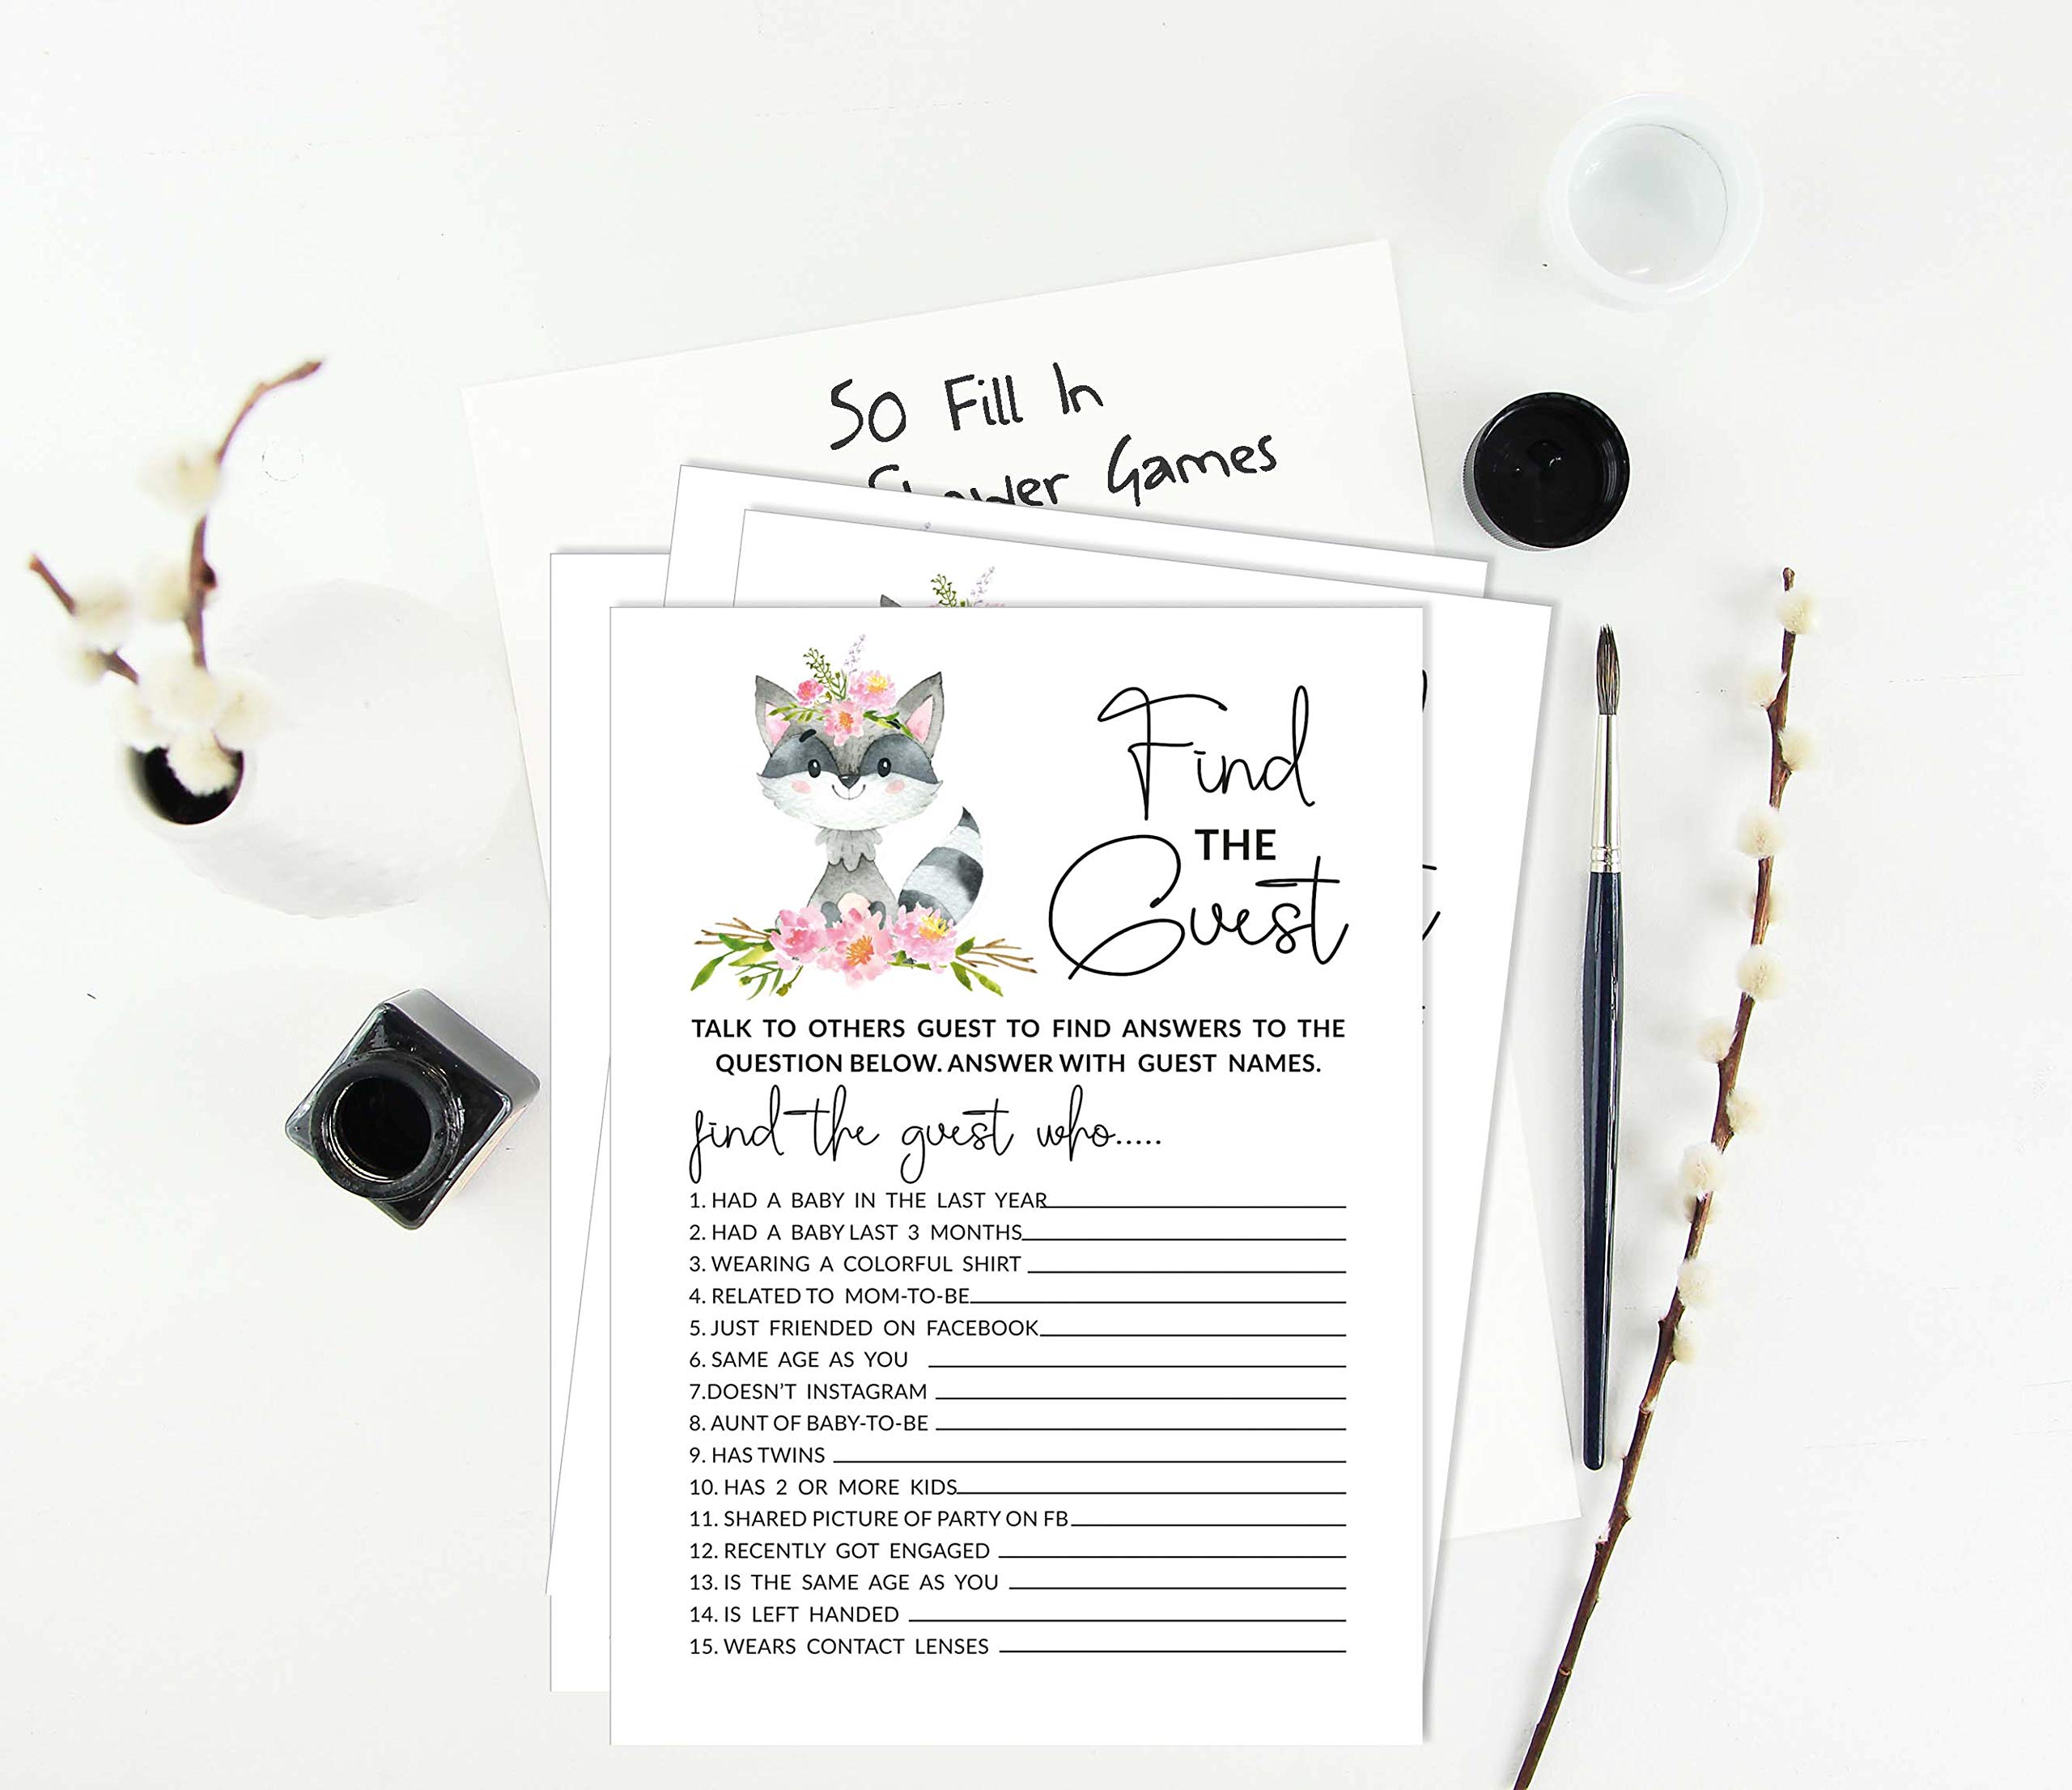 50 Fill In
Shower Games
Find
THE
Guest
TALK TO OTHERS GUEST TO FIND ANSWERS TO THE
QUESTION BELOW. ANSWER WITH GUEST NAMES.
find the guest who.....
1. HAD A BABY IN THE LAST YEAR
2. HAD A BABY LAST 3 MONTHS
3. WEARING A COLORFUL SHIRT
4. RELATED TO MOM-TO-BE
5. JUST FRIENDED ON FACEBOOK
6. SAME AGE AS YOU
7.DOESN'T INSTAGRAM
8. AUNT OF BABY-TO-BE
9. HAS TWINS
10. HAS 2 OR MORE KIDS
11. SHARED PICTURE OF PARTY ON FB
12. RECENTLY GOT ENGAGED
13. IS THE SAME AGE AS YOU
14. IS LEFT HANDED
15. WEARS CONTACT LENSES